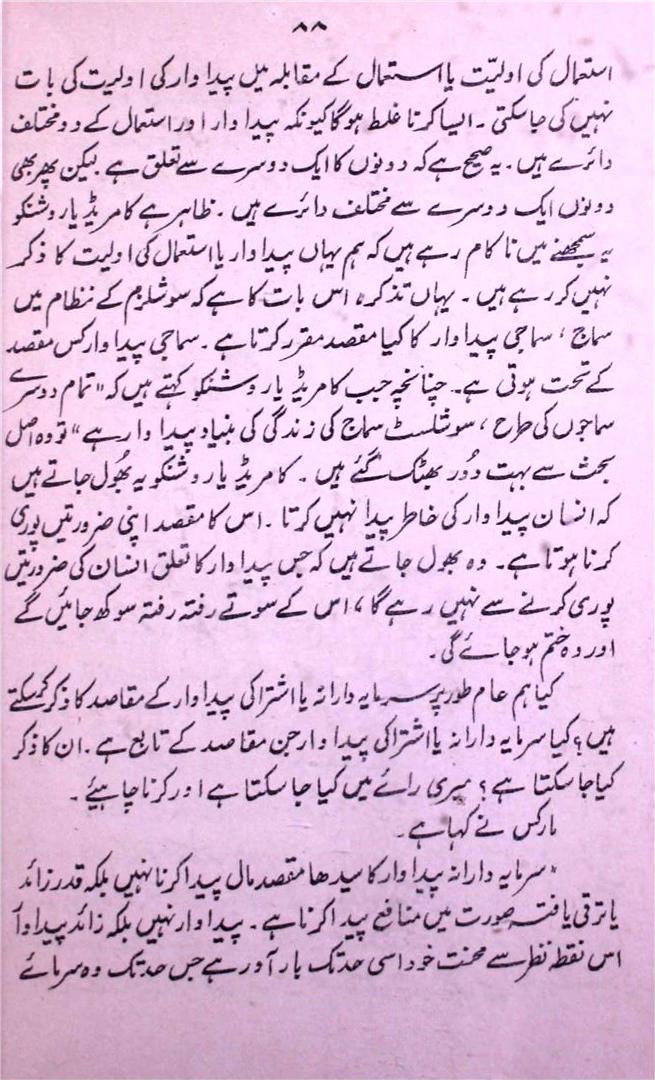 ۸۸
استعمال کی اولیّت یا استعمال کے مقابلہ میں پیداوار کی اولیت کی بات
نہیں کی جاسکتی ۔ ایسا کرنا غلط ہوگا کیونکہ پیداوار اور استعمال کے دو مختلف
دائرے ہیں ۔ یہ صحیح ہے کہ دونوں کا ایک دوسرے سے تعلق ہے لیکن پھر بھی
دونوں ایک دوسرے سے مختلف دائرے ہیں ۔ ظاہر ہے کامریڈ یاروشنکو
یہ سمجھنے میں ناکام رہے ہیں کہ ہم یہاں پیداوار یا استعمال کی اولیت کا ذکر
نہیں کر رہے ہیں ۔ یہاں تذکرہ اس بات کا ہے کہ سوشلزم کے نظام میں
سماج ، سماجی پیداوار کا کیا مقصد مقرر کرتا ہے ۔ سماجی پیداوار کس مقصد
کے تحت ہوتی ہے۔ چنانچہ جب کامریڈ یاروشنکو کہتے ہیں کہ "تمام دوسرے
سماجوں کی طرح ، سوشلسٹ سماج کی زندگی کی بنیاد پیداوار ہے" تو وہ اصل
بحث سے بہت دُور بھٹک گئے ہیں ۔ کامریڈ یاروشنکو یہ بھُول جاتے ہیں
کہ انسان پیداوار کی خاطر پیدا نہیں کرتا ۔ اس کا مقصد اپنی ضرورتیں پوری
کرنا ہوتا ہے۔ وہ بھول جاتے ہیں کہ جس پیداوار کا تعلق انسان کی ضرورتیں
پوری کرنے سے نہیں رہے گا ، اس کے سوتے رفتہ رفتہ سوکھ جائیں گے
اور وہ ختم ہوجائے گی ۔
کیا ہم عام طور پر سرمایہ دارانہ یا اشتراکی پیداوار کے مقاصد کا ذکر کرسکتے
ہیں ؟ کیا سرمایہ دارانہ یا اشتراکی پیداوار جن مقاصد کے تابع ہے ۔ ان کا ذکر
کیا جاسکتا ہے ؟ میری رائے میں کیا جاسکتا ہے اور کرنا چاہیئے ۔
مارکس نے کہا ہے ۔
"سرمایہ دارانہ پیداوار کا سیدھا مقصد مال پیدا کرنا نہیں بلکہ قدر زائد
یا ترقی یافتہ صورت میں منافع پیدا کرنا ہے ۔ پیداوار نہیں بلکہ زائد پیداوار
اس نقطہ نظر سے محنت خود اسی حد تک بار آور ہے جس حد تک وہ سرمائے